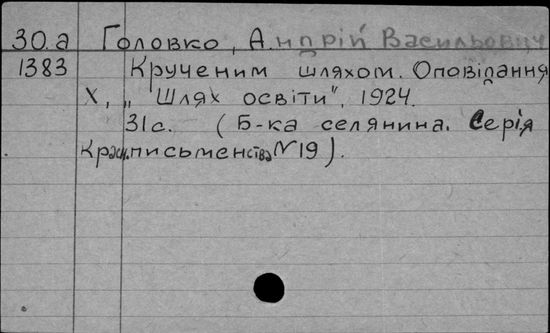 30.а Головко, Андрій Васильович
1383 Крученим шляхом. Оповідання
Х, „Шлях освіти", 1924.
31с. (Б-ка селянина. Серія
Красн.письменства №19).